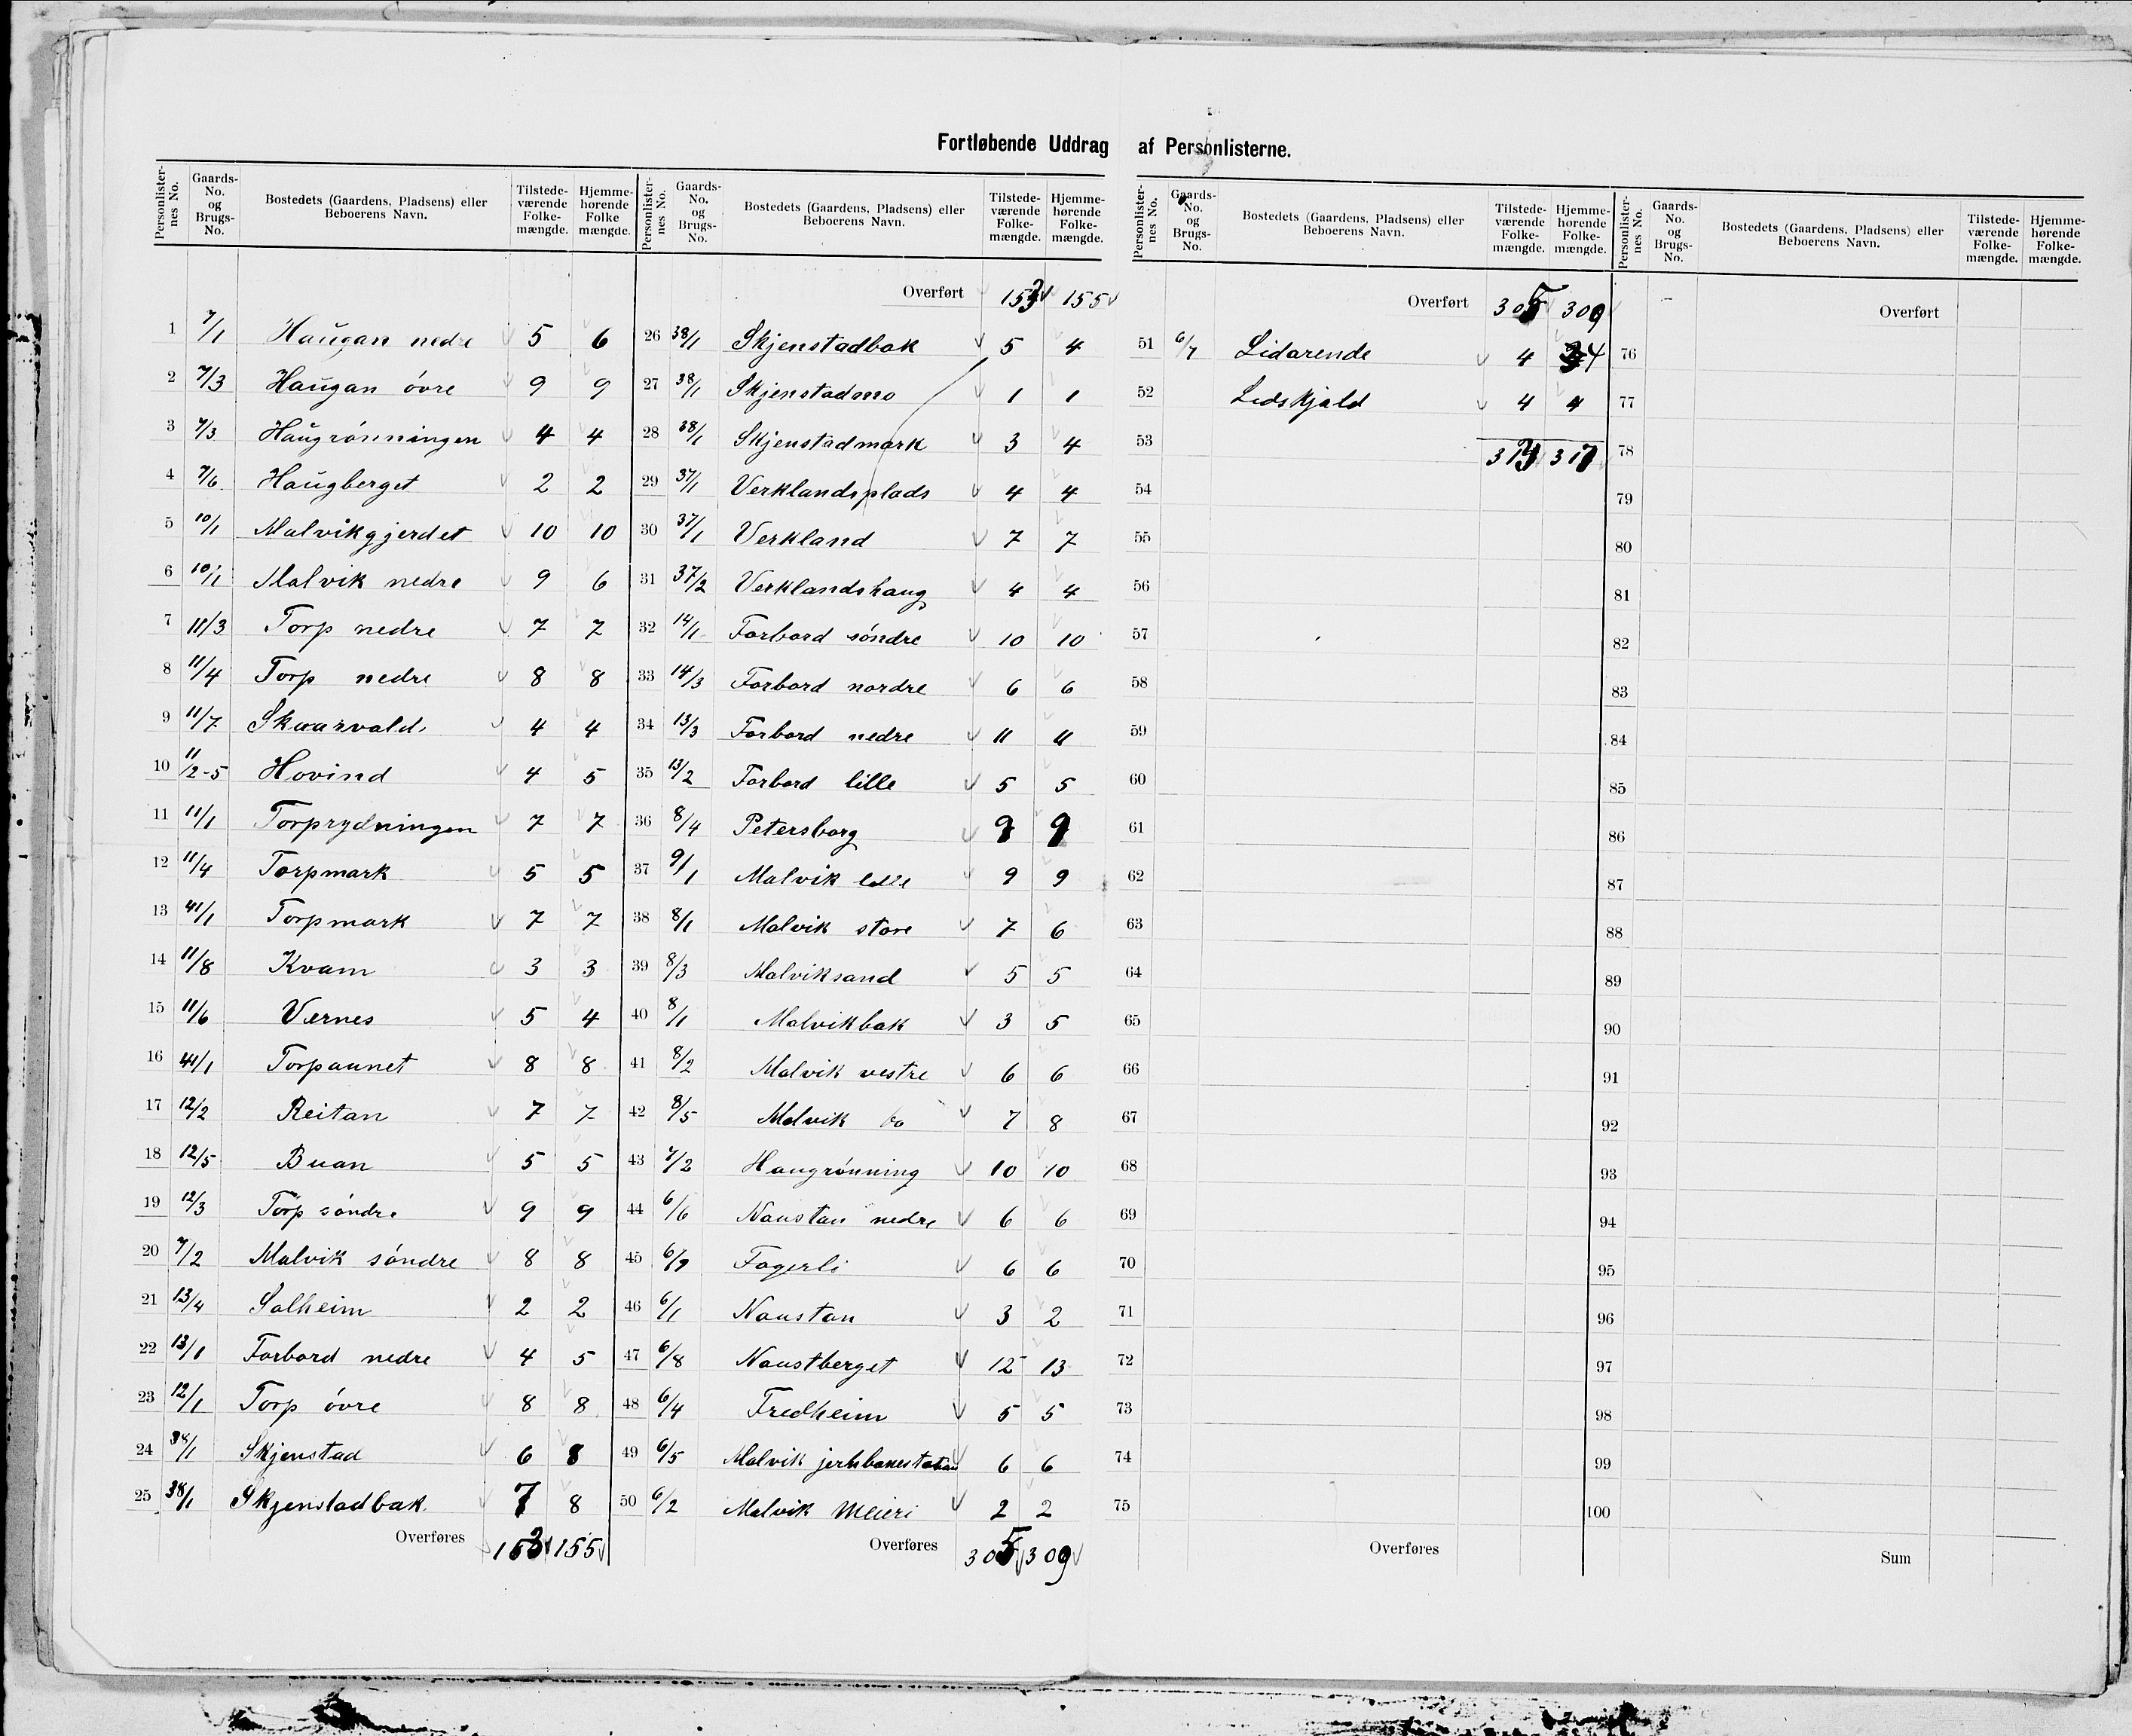 Fortløbende Uddrag af Personlisterne.
Personlister-nes No. Gaards-No. og Brugs-No. Bostedets (Gaardens, Pladsens) eller Beboerens Navn. Tilstede-værende Folke-mængde. Hjemme-hørende Folke mængde.
1 7/1 Haugan nedre 5 6
2 7/3 Haugan övre 9 9
3 7/3 Haugrönningen 4 4
4 7/6 Haugberget 2 2
5 10/1 Malvikgjerdet 10 10
6 10/1 Malvik nedre 9 6
7 11/3 Torp nedre 7 7
8 11/4 Torp nedre 8 8
9 11/7 Skaarvald 4 4
10 11/2-5 Hovind 4 5
11 11/1 Torprydningen 7 7
12 11/4 Torpmark 5 5
13 41/1 Torpmark 7 7
14 11/8 Kvam 3 3
15 11/6 Værnes 5 4
16 41/1 Torpaunet 8 8
17 12/2 Reitan 7 7
18 12/5 Buan 5 5
19 12/3 Torp söndre 9 9
20 7/2 Malvik söndre 8 8
21 13/4 Solheim 2 2
22 13/1 Forbord nedre 4 5
23 12/1 Torp övre 8 8
24 38/1 Skjenstad 6 8
25 38/1 Skjenstadbak 7 8
Overføres 153 155
Personlister-nes No. Gaards-No. og Brugs-No. Bostedets (Gaardens, Pladsens) eller Beboerens Navn. Tilstede-værende Folke-mængde. Hjemme-hørende Folke-mængde.
Overført 153 155
26 38/1 Skjenstadbak 5 4
27 38/1 Skjenstadmo 1 1
28 38/1 Skjenstadmark 3 4
29 37/1 Verklandsplads 4 4
30 37/1 Verkland 7 7
31 37/2 Verklandshaug 4 4
32 14/1 Forbord söndre 10 10
33 14/3 Forbord nordre 6 6
34 13/3 Forbord nedre 11 11
35 13/2 Forbord lille 5 5
36 8/4 Petersborg 9 9
37 9/1 Malvik lille 9 9
38 8/1 Malvik store 7 6
39 8/3 Malviksand 5 5
40 8/1 Malvikbak 3 5
41 8/2 Malvik vestre 6 6
42 8/5 Malvik 7 8
43 7/2 Haugrönning 10 10
44 6/6 Naustan nedre 6 6
45 6/9 Fagerli 6 6
46 6/1 Naustan 3 2
47 6/8 Naustberget 12 13
48 6/4 Fredheim 5 5
49 6/5 Malvik jernbanestation 6 6
50 6/2 Malvik Meieri 2 2
Overføres 305 309
Personlister-nes No. Gaards-No. og Brugs-No. Bostedets (Gaardens, Pladsens) eller Beboerens Navn. Tilstede-værende Folke-mængde. Hjemme-hørende Folke-mængde.
Overført 305 309
51 6/7 Lidarende 4 4
52 Lidskjald 4 4
53 313 317
54
55
56
57
58
59
60
61
62
63
64
65
66
67
68
69
70
71
72
73
74
75
Overføres
Personlister-nes No. Gaards-No. og Brugs-No. Bostedets (Gaardens, Pladsens) eller Beboerens Navn. Tilstede-værende Folke-mængde. Hjemme-hørende Folke-mængde.
Overført
76
77
78
79
80
81
82
83
84
85
86
87
88
89
90
91
92
93
94
95
96
97
98
99
100
Sum